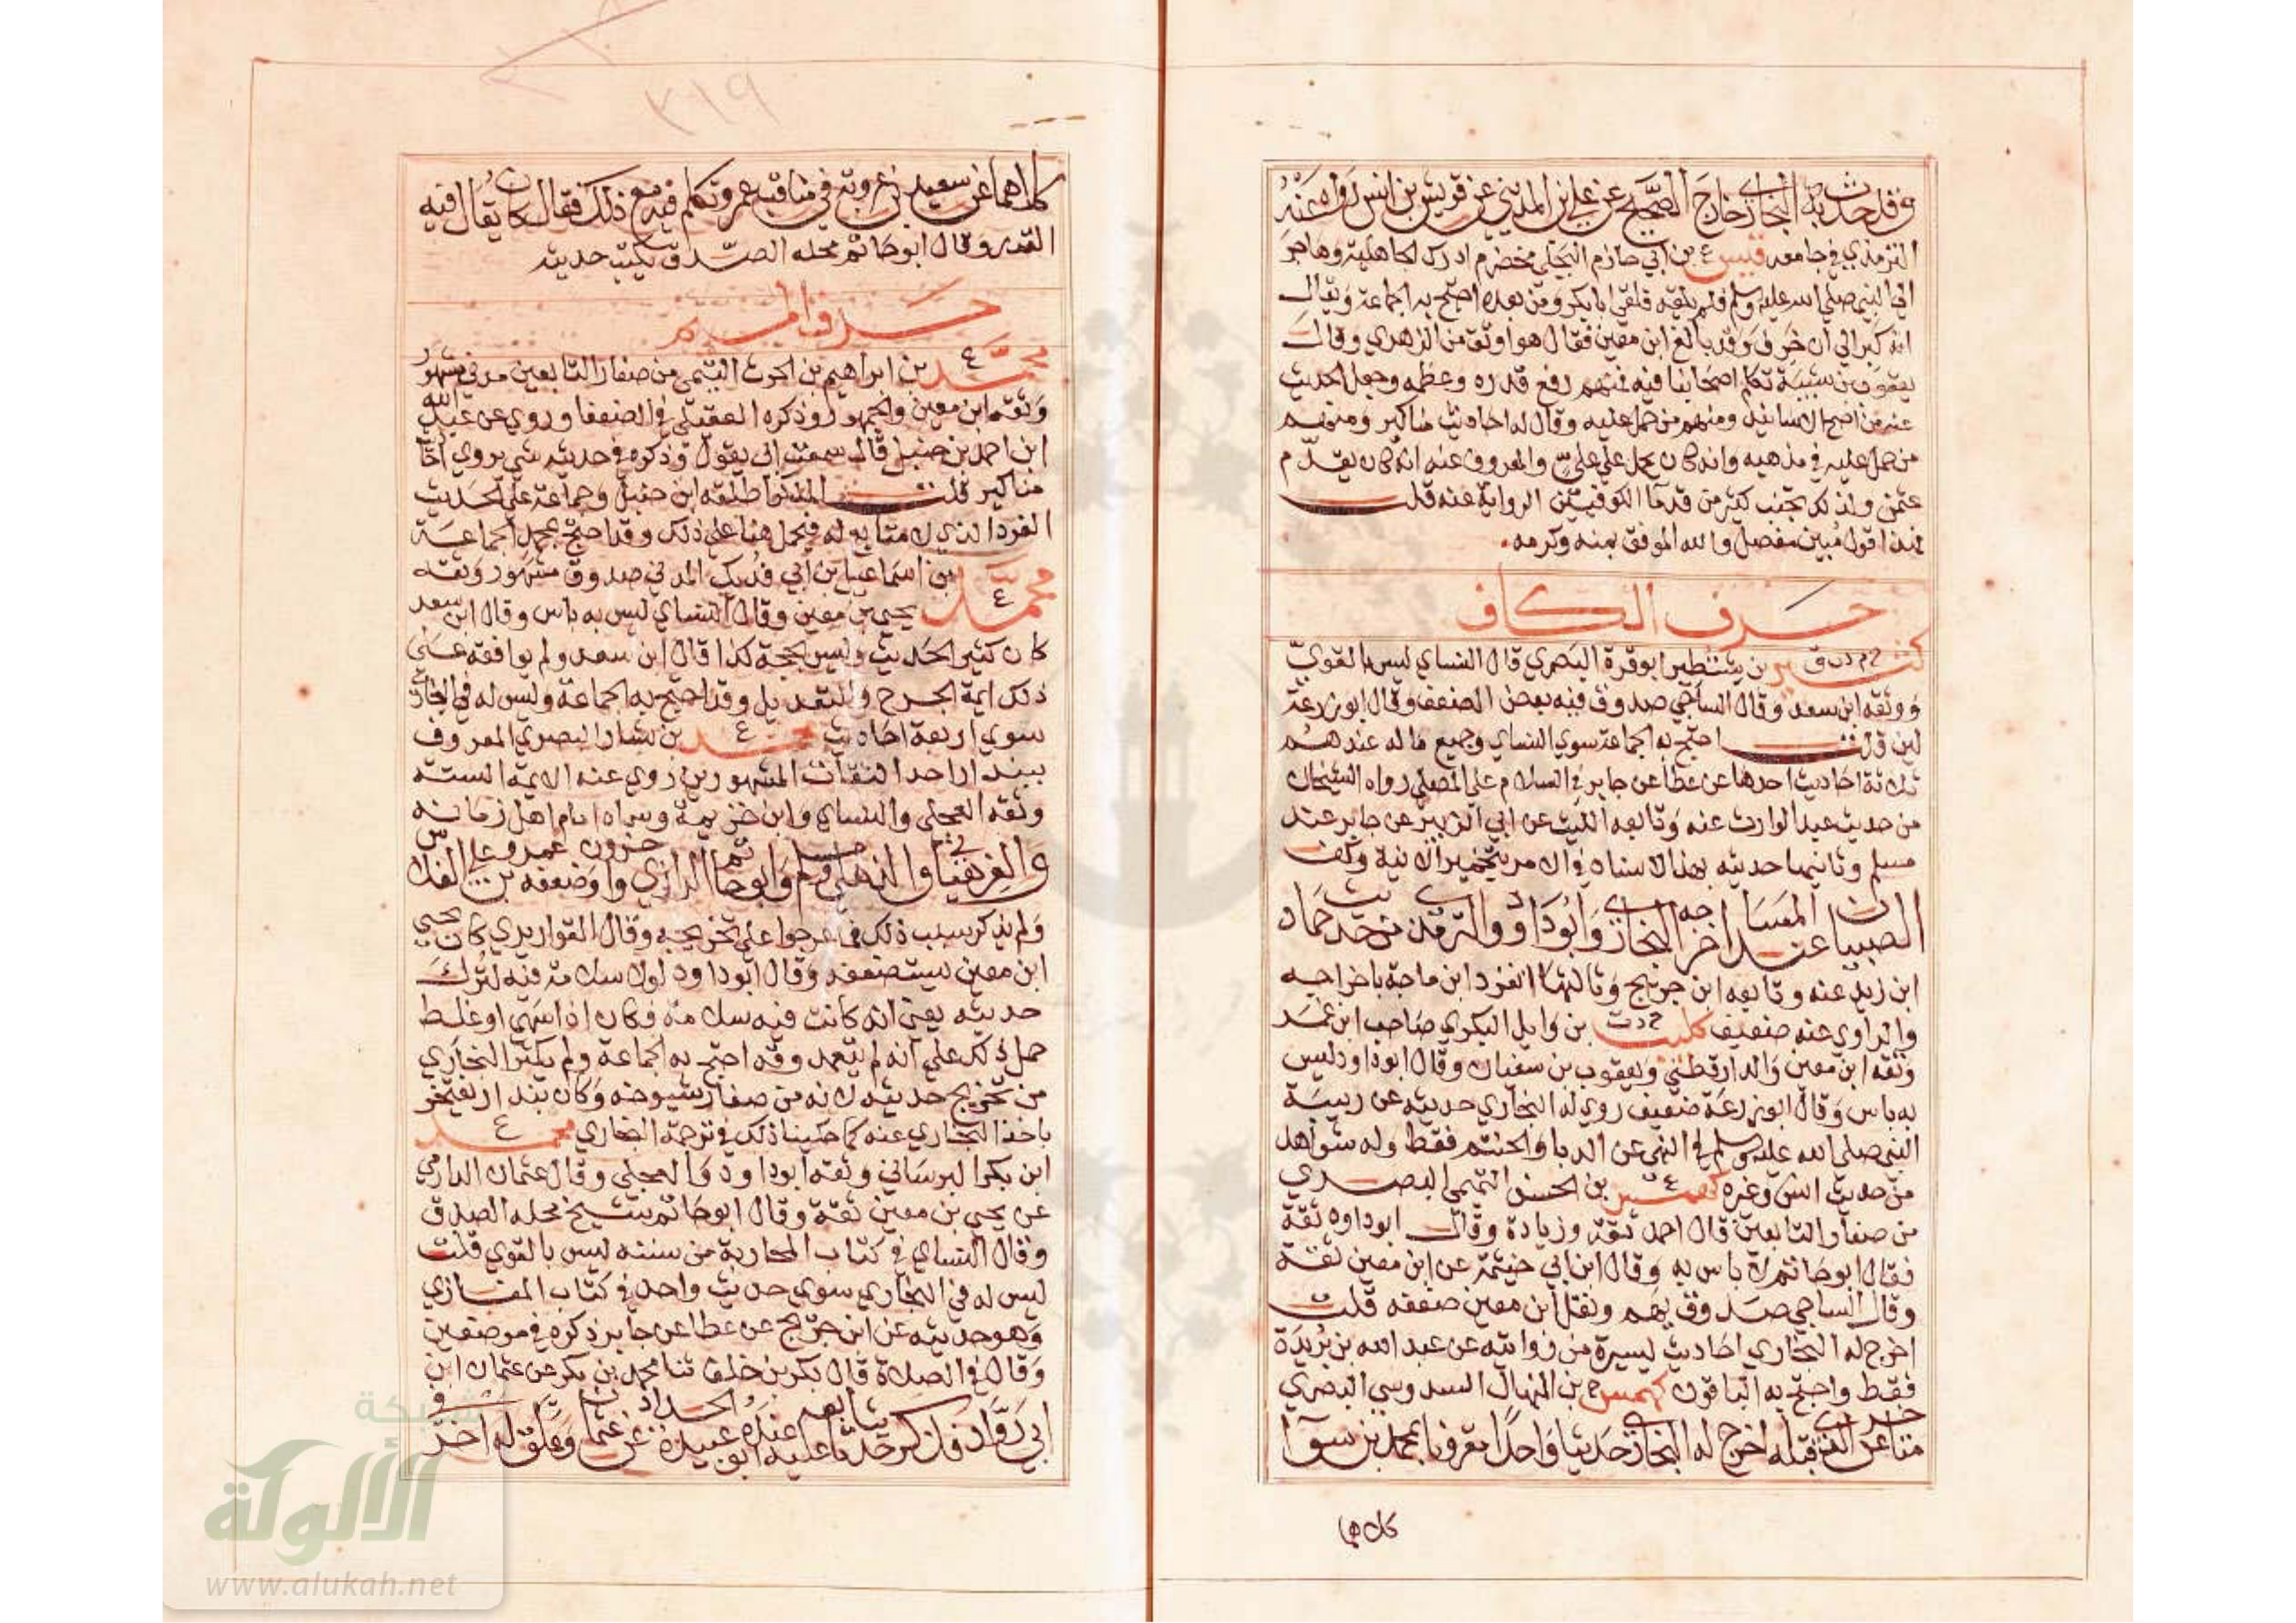 وقد حدث به البخاري خارج الصحيح عن علي ابن المديني عن قريش بن انس رواه عنه
الترمذي في جامعه قيس ع بن ابي حازم البجلي مخضرم ادرك الجاهلية وهاجر
الي النبي صلى الله عليه وسلم فلم يلقه فلقي ابا بكر ومن بعده احتج به الجماعة ويقال
انه كبر الي ان خرف وقد بالغ ابن معين فقال هو اوثق من الزهري وقال
يعقوب بن شيبة تكلم اصحابنا فيه فمنهم من رفع قدره وعظمه وجعل الحديث
عنه من اصح الاسانيد ومنهم من حمل عليه وقال له احاديث مناكير ومنهم
من حمل عليه في مذهبه وانه كان يحمل علي علي والمعروف عنه انه كان يقدم
عثمن ولذلك تجنب كثير من قدما الكوفيين الرواية عنه قلت
فهذا قول مبين مفصل والله الموفق بمنه وكرمه
حرف الكاف
كثير خ م د ت ق بن شنظير ابو قرة البصري قال النساي ليس بالقوي
ووثقه ابن سعد وقال الساجي صدوق فيه بعض الضعف وقال ابو زرعة
لين قلت احتج به الجماعة سوي النساي وجميع ما له عندهم
ثلاثة احاديث احدها عن عطا عن جابر في السلام على المصلي رواه الشيخان
من حديث عبد الوارث عنه وتابعه الليث عن ابي الزبير عن جابر عند
مسلم وثانيها حديثه بهذا الاسناد في الامر بتخمير الانية وكف
الصبيان عند المسا اخرجه البخاري وابو داود والترمذي من حديث حماد
ابن زيد عنه وتابعه ابن جريج وثالثها انفرد ابن ماجة باخراجه
والراوي عنه ضعيف كليب خ د ت بن وايل البكري صاحب ابن عمر
وثقه ابن معين والدارقطني ويعقوب بن سفيان وقال ابو داود ليس
به باس وقال ابو زرعة ضعيف روي له البخاري حديثه عن ربيبة
النبي صلى الله عليه وسلم في النهي عن الدبا والحنتم فقط وله شواهد
من حديث انس وغيره كهمس ع بن الحسن التميمي البصري
من صغار التابعين قال احمد ثقة وزيادة وقال ابو داود ثقة
فقال ابو حاتم لا باس به وقال ابن ابي خيثمة عن ابن معين ثقة
وقال الساجي صدوق يهم ونقل ابن معين ضعفه قلت
اخرج له البخاري احاديث يسيرة من روايته عن عبد الله بن بريدة
فقط واحتج به الباقون كهمس خ بن المنهال السدوسي البصري
متاخر عن الذي قبله اخرج له البخاري حديثا واحدا مقرونا بمحمد بن سوآ
كلاهما
كلاهما عن سعيد بن عروبة في مناقب عمر وتكلم فيه مع ذلك فقال كان يقال فيه
القدر وقال ابو حاتم محله الصدق يكتب حديثه
حرف الميم
محمد ع بن ابراهيم بن الحرث التيمي من صغار التابعين مدني مشهور
وثقه ابن معين والجمهور وذكره العقيلي في الضعفا وروي عن عبد الله
ابن احمد بن حنبل قال سمعت ابي يقول وذكره في حديثه شي يروي احاديث
مناكير قلت المنكر اطلقه ابن حنبل وجماعة علي الحديث
الفرد الذي لا متابع له فيحمل هنا علي ذلك وقد احتج بمحمد الجماعة
محمد ع بن اسماعيل بن ابي فديك المدني صدوق مشهور وثقه
يحيي بن معين وقال النساي ليس به باس وقال ابن سعد
كان كثير الحديث وليس بحجة كذا قال ابن سعد ولم يوافقه علي
ذلك ايمة الجرح والتعديل وقد احتج به الجماعة وليس له في البخاري
سوي اربعة احاديث محمد ع بن بشار البصري المعروف
ببندار احد الثقات المشهورين روي عنه الايمة الستة
وثقه العجلي والنساي وابن خزيمة وسماه امام اهل زمانه
والفرهياني والذهلي ومسلم وابو حاتم الرازي واخرون وضعفه عمرو بن علي الفلاس
ولم يذكر سبب ذلك فما عرجوا علي تجريحه وقال القواريري كان يحيي
ابن معين يستضعفه وقال ابو داود لولا سلامة فيه لترك
حديثه يعني انه كانت فيه سلامة فكان اذا سهي او غلط
حمل ذلك علي انه لم يتعمد وقد احتج به الجماعة ولم يكثر البخاري
من تخريج حديثه لانه من صغار شيوخه وكان بندار يفتخر
باخذ البخاري عنه كما حكينا ذلك في ترجمة البخاري محمد ع
ابن بكر البرساني وثقه ابو داود والعجلي وقال عثمان الدارمي
عن يحيي بن معين ثقة وقال ابو حاتم شيخ محله الصدق
وقال النساي في كتاب المحاربة من سننه ليس بالقوي قلت
ليس له في البخاري سوي حديث واحد في كتاب المغازي
وهو حديثه عن ابن جريج عن عطا عن جابر ذكره في موضعين
وقال في الصلاة قال بكر بن خلف ثنا محمد بن بكر عن عثمان ابن
ابي رواد فذكر حديثا تابعه عليه عنده ابو عبيدة الحداد عن عثمان وعلق له اخر في
٣١٩
شبكة
الألوكة
www.alukah.net